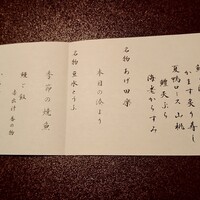 かます炙り寿し
夏鴨ロース 山桃
鱧天ぷら
海老からすみ
名物 あげ田楽
本日の湊より
名物 熟水とうふ
季節の焼魚
鰻ご飯
赤出汁 香の物